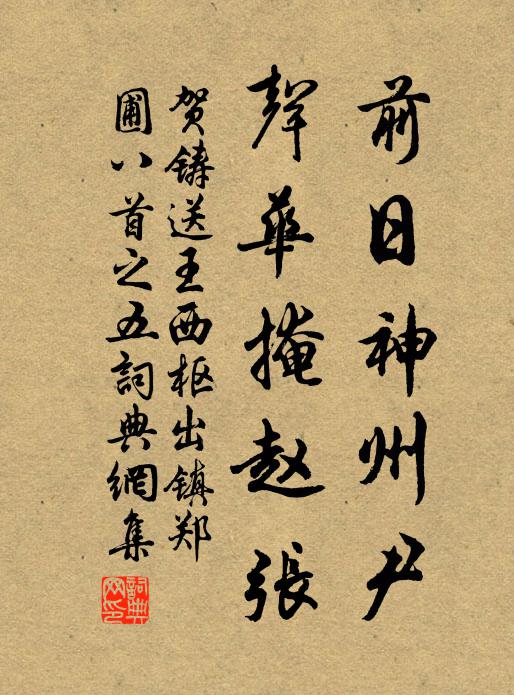 前日神州尹
聲華掩赵張
贺鑄送王西枢出镇郑
圃八首之五詞典網集
詞典网印